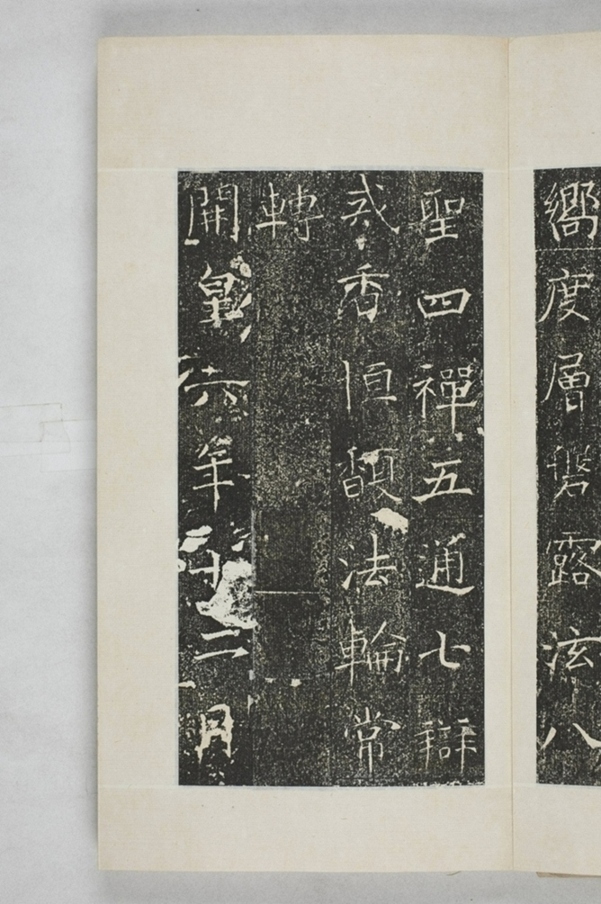 嚮度層露泫八
聖四禪五通七辯
戒香恒馥法輪常
轉
開皇六年十二月